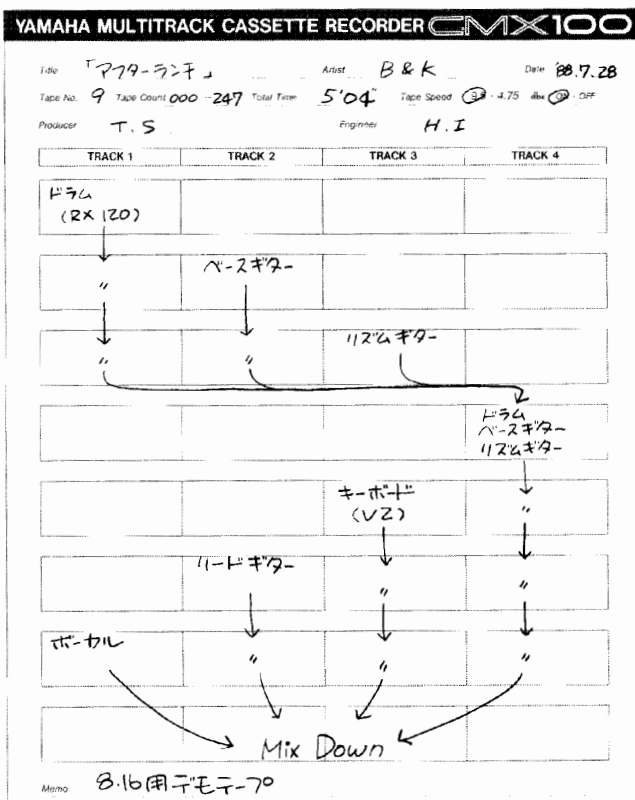 YAMAHA MULTITRACK CASSETTE RECORDER CMX100
Title 「アフターランチ」 Artist B & K Date '88.7.28
Tape No. 9 Tape Count 000 - 247 Total Time 5'04" Tape Speed 9.5 · 4.75 dbx ON · OFF
Producer T.S Engineer H.I
TRACK 1 TRACK 2 TRACK 3 TRACK 4
ドラム
(RX 120)
〃 ベースギター
〃 〃 リズムギター
ドラム
ベースギター
リズムギター
キーボード
(VZ) 〃
リードギター 〃 〃
ボーカル 〃 〃 〃
Mix Down
Memo 8.16用デモテープ